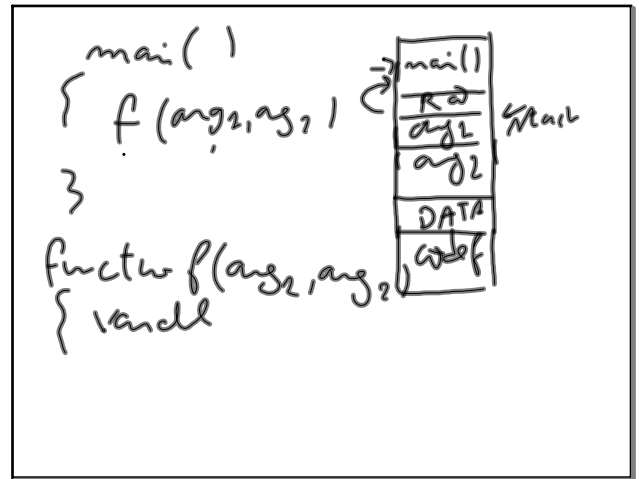 mai( )
{ f (arg1, arg2 )
}
function f(arg1, arg2)
{ variabl
main()
R@
arg1
arg2
DATA
code f